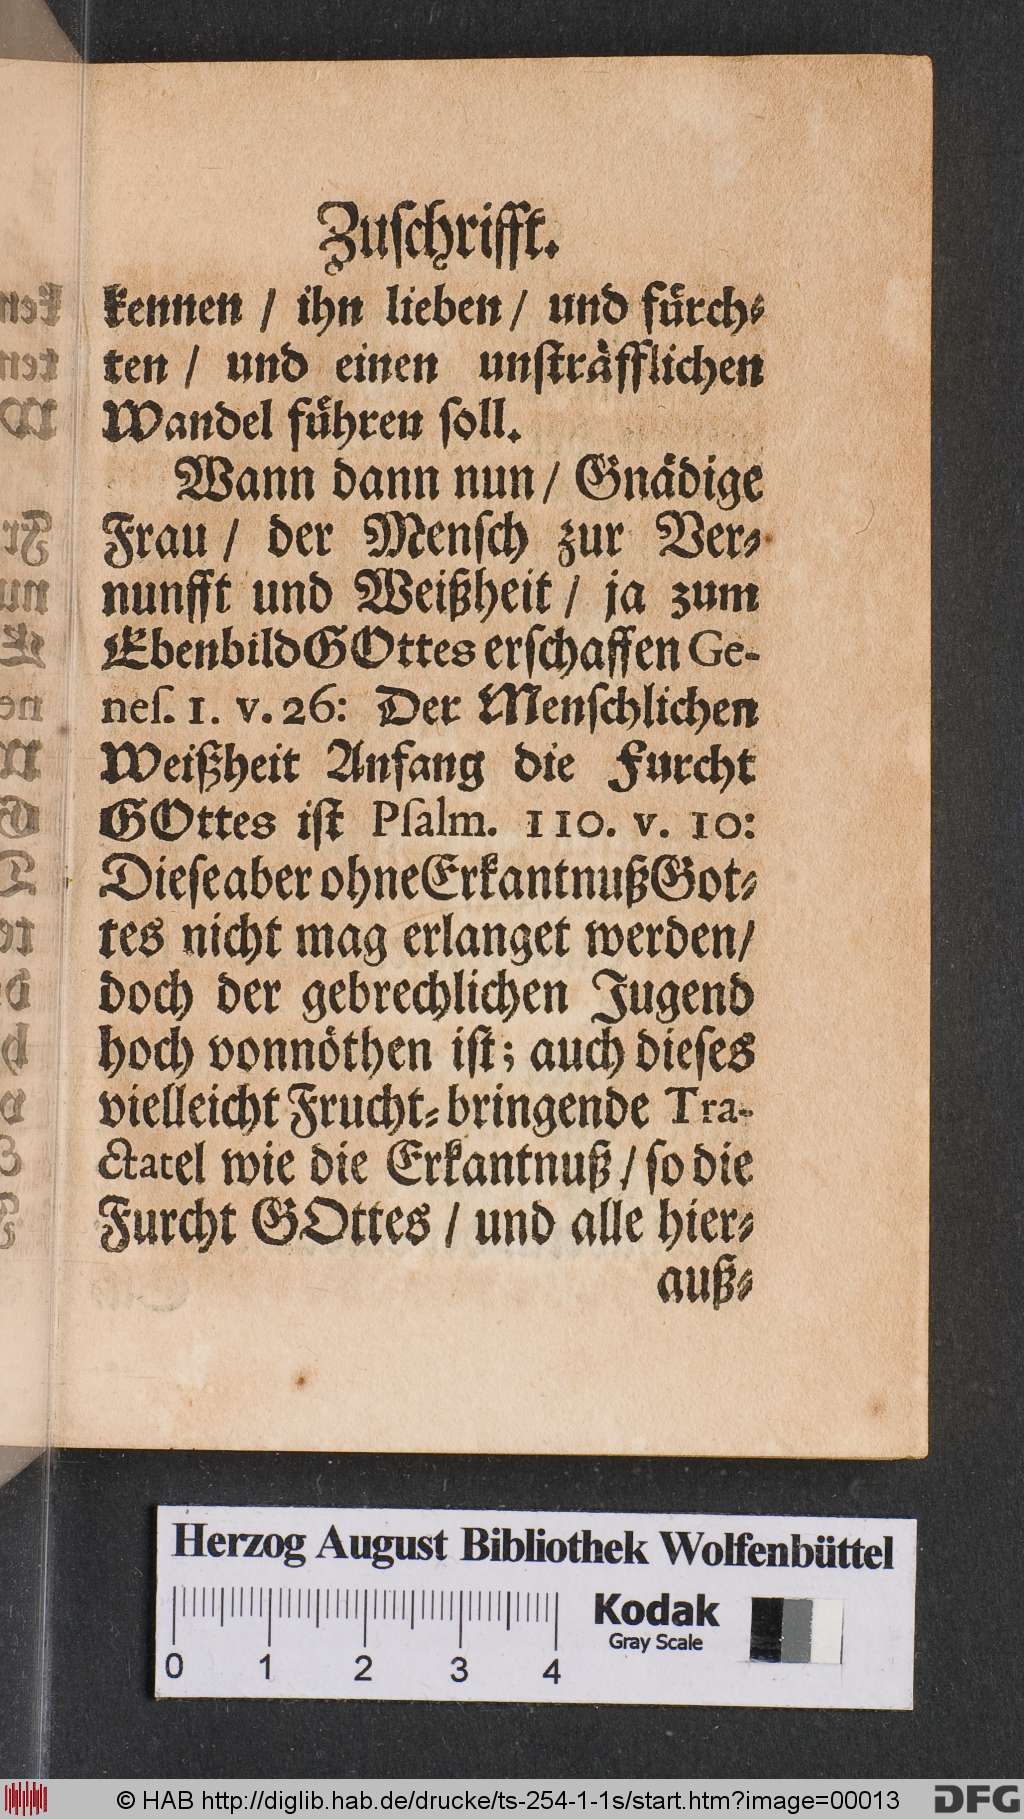 Zuſchrifft.
kennen / ihn lieben / und fuͤrch⸗
ten / und einen unſtraͤfflichen
Wandel fuͤhren ſoll.
Wann dann nun / Gnaͤdige
Frau / der Menſch zur Ver⸗
nunfft und Weißheit / ja zum
Ebenbild GOttes erſchaffen Ge-
neſ. 1. v. 26: Der Menſchlichen
Weißheit Anfang die Furcht
GOttes iſt Pſalm. 110. v. 10:
Dieſe aber ohne Erkantnuß Got⸗
tes nicht mag erlanget werden /
doch der gebrechlichen Jugend
hoch vonnoͤthen iſt; auch dieſes
vielleicht Frucht⸗bringende Tra-
ctatel wie die Erkantnuß / ſo die
Furcht GOttes / und alle hier⸗
auß⸗
Herzog August Bibliothek Wolfenbüttel
Kodak
Gray Scale
0 1 2 3 4
© HAB http://diglib.hab.de/drucke/ts-254-1-1s/start.htm?image=00013
DFG